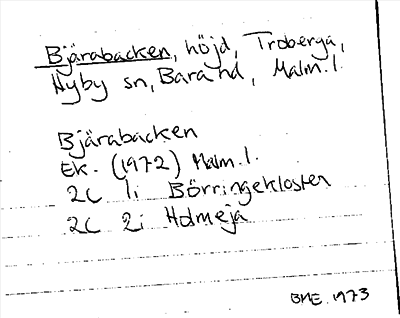 Bjärabacken, höjd, Troberga,
Hyby sn, Bara hd, Malm. l.
Bjärabacken
Ek. (1972) Malm. l.
2C 1i Börringekloster
2C 2i Holmeja
BME. 1973